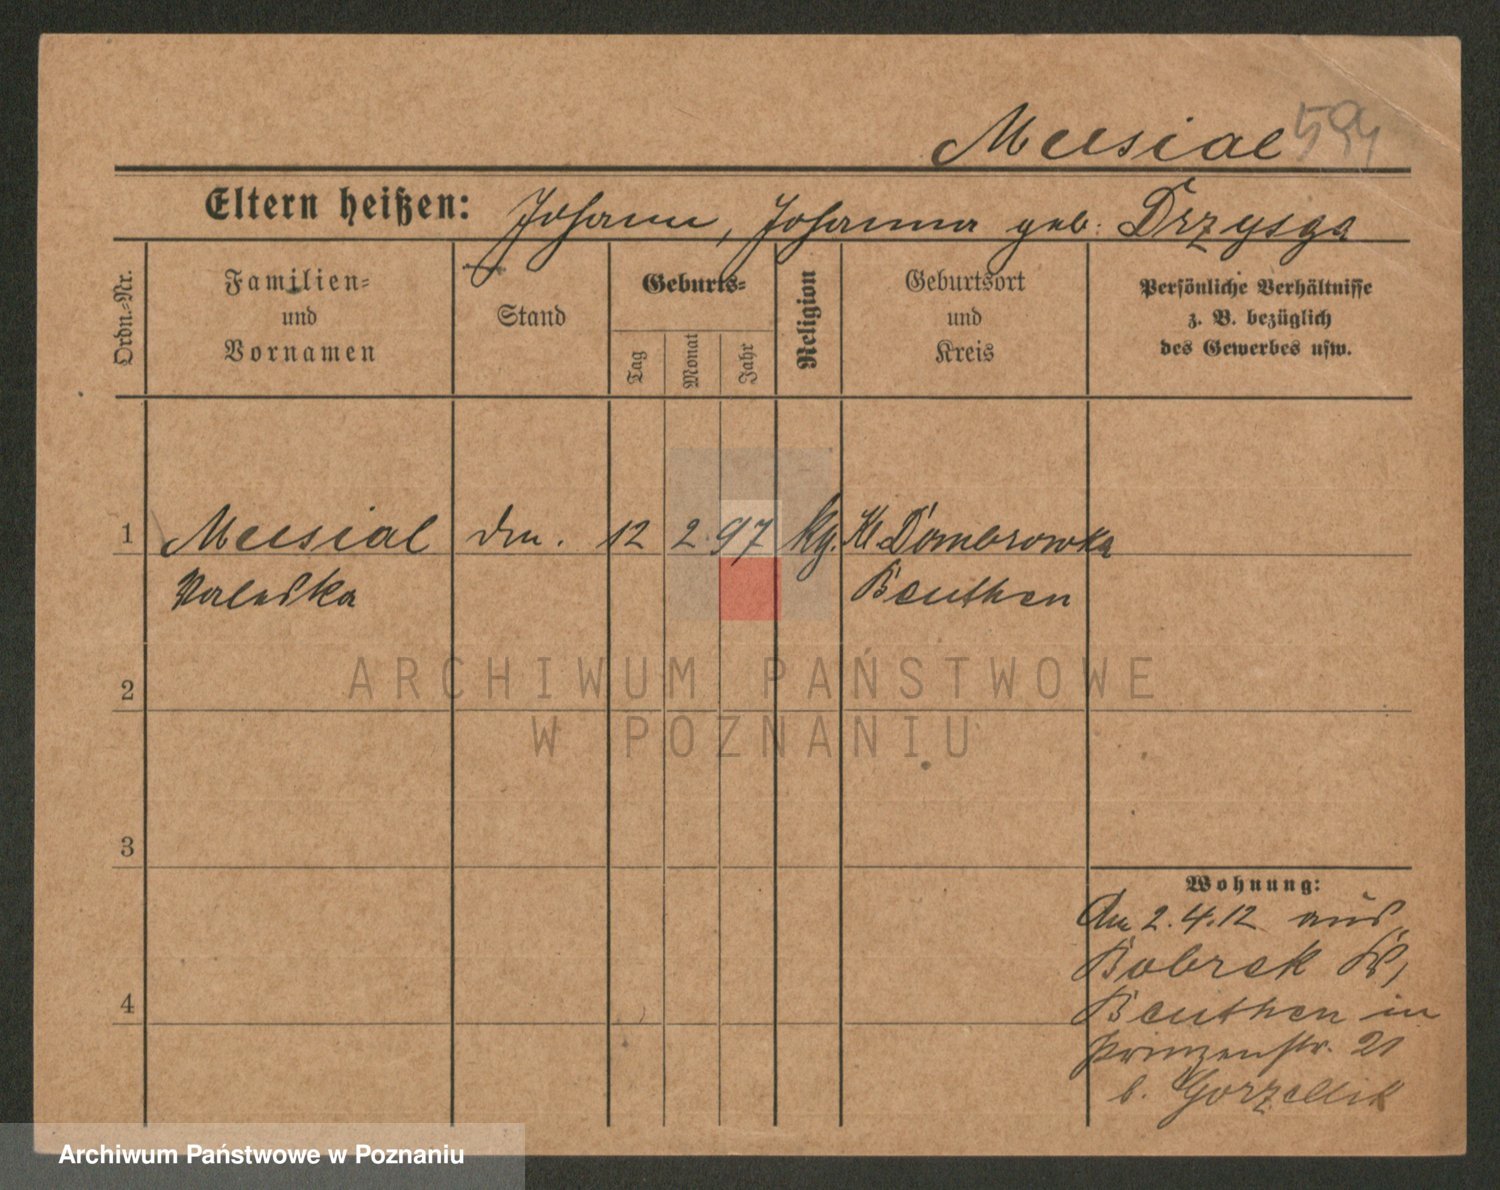 Musial 594
Eltern heißen: Johann, Johanna geb. Drzysga
Ordn.-Nr.
Familien-
und
Vornamen
Stand
Geburts-
Tag
Monat
Jahr
Religion
Geburtsort
und
Kreis
Persönliche Verhältnisse
z. B. bezüglich
des Gewerbes usw.
1 Musial 12 2. 97 kg. Kl. Dombrowka
Valeska Beuthen
ARCHIWUM PAŃSTWOWE
2
W POZNANIU
3
Wohnung:
Am 2.4.12 aus
Bobrek Kr,
4
Beuthen in
Prinzenstr. 21
b. Gorzellik
Archiwum Państwowe w Poznaniu